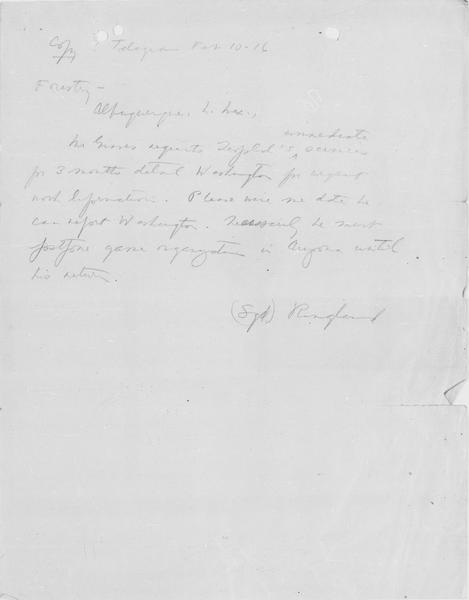 Copy Telegram Feb 10-16
Forestry -
Albuquerque, N. Mex.,
immediate
Mr Graves requests Leopold's services
for 3 months detail Washington for urgent
work Information. Please wire me date he
can report Washington. Necessarily he must
postpone game organization in Arizona until
his return.
(Sgd) Ringland